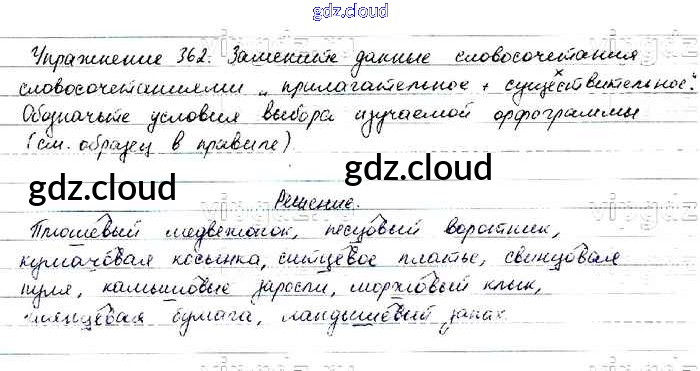 gdz.cloud
Упражнение 362. Замените данные словосочетания
словосочетаниями „прилагательное + существительное“.
Обозначьте условия выбора изучаемой орфограммы
(см. образец в правиле).
gdz.cloud gdz.cloud
Решение.
Плюшевый медвежонок, песцовый воротник,
кумачовая косынка, ситцевое платье, свинцовая
пуля, камышовые заросли, моржовый клык,
глянцевая бумага, ландышевый запах